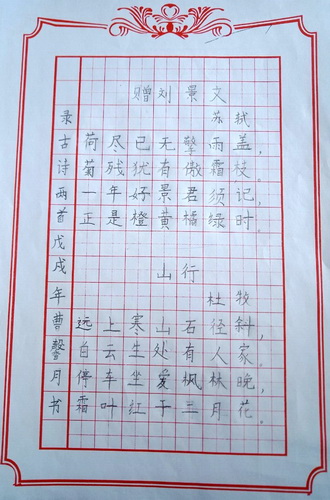 赠刘景文
苏轼
荷尽已无擎雨盖,
菊残犹有傲霜枝。
一年好景君须记,
正是橙黄橘绿时。
山行
杜牧
远上寒山石径斜,
白云生处有人家。
停车坐爱枫林晚,
霜叶红于二月花。
录古诗两首戊戌年曹馨月书